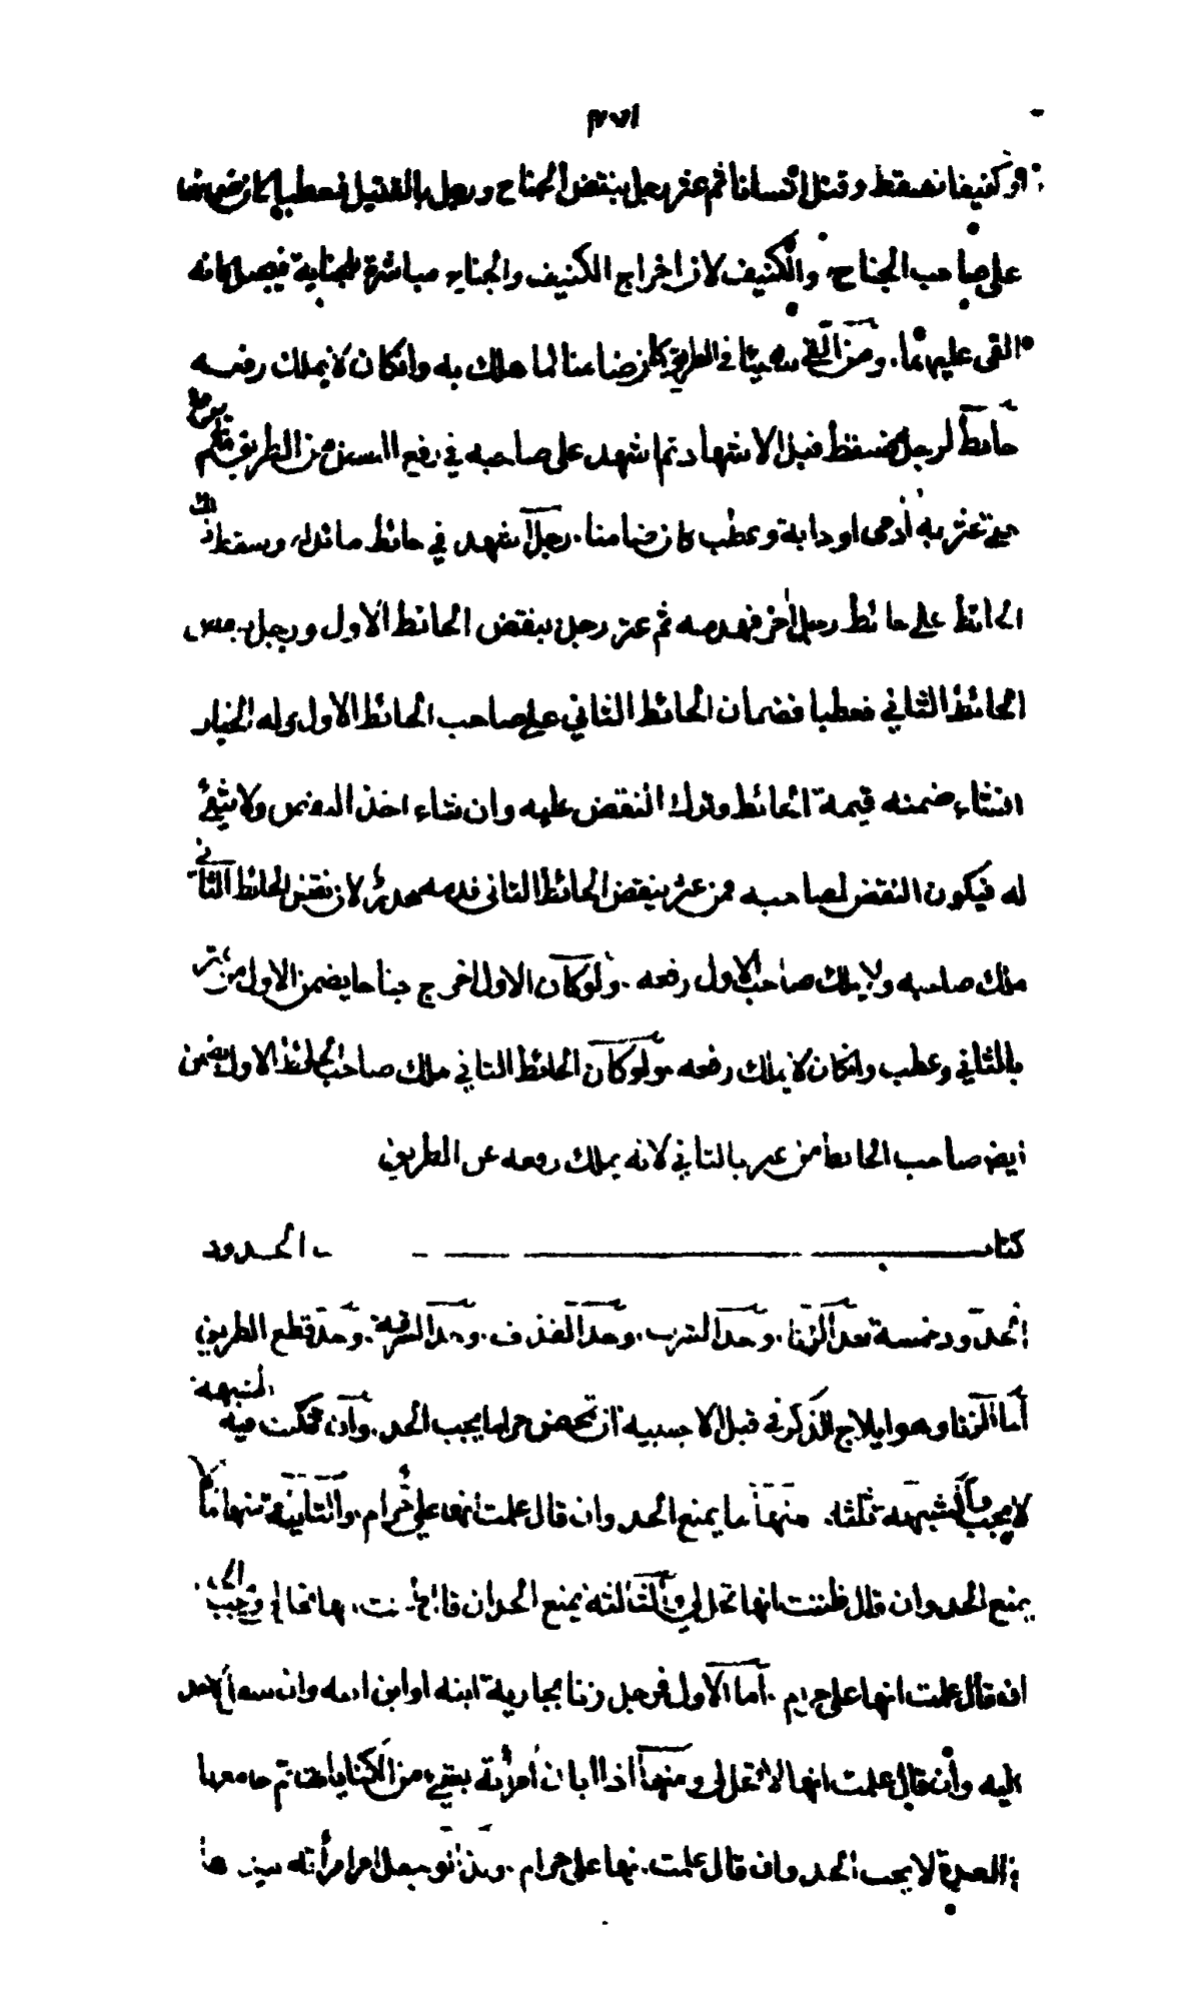 او كنيفا فسقط وقتل انسانا ثم عثر رجل بنقض الجناح ورجل بالقتيل فعطبا كان ضمانهما
على صاحب الجناح والكنيف لان اخراج الكنيف والجناح مباشرة للجناية فيصير كانه
القى عليهما. ومن القى شيئا في الطريق كان ضامنا لما هلك به وان كان لا يملك رفعه
حائط لرجل سقط قبل الاشهاد ثم اشهد على صاحبه في رفع النقض من الطريق فلم يرفع
حتى عثر به آدمى او دابة وعطب كان ضامنا. رجل اشهد في حائط مائل له وسقط ذلك
الحائط على حائط رجل آخر فهدمه ثم عثر رجل بنقض الحائط الاول ورجل بنقض
الحائط الثاني فعطبا فضمان الحائط الثاني على صاحب الحائط الاول وله الخيار
ان شاء ضمنه قيمة الحائط وترك النقض عليه وان شاء اخذ النقض ولا شيء
له فيكون النقض لصاحبه فمن عثر بنقض الحائط الثانى فدمه هدر لان نقض الحائط الثاني
ملك صاحبه ولا يملك صاحب الاول رفعه. ولو كان الاول اخرج جناحا يضمن الاول من عثر
بالثاني وعطب وان كان لا يملك رفعه ولو كان الحائط الثاني ملك صاحب الحائط الاول يضمن
ايضا صاحب الحائط من عثر بالثاني لانه يملك رفعه عن الطريق
كتاب الحدود
الحدود خمسة حد الزنا. وحد الشرب. وحد القذف. وحد السرقة. وحد قطع الطريق
أما الزنا وهو ايلاج الذكر في قبل الاجنبية ان تمحض حراما يجب الحد. وان تمكنت فيه الشبهة
لا يجب والشبهة ثلثة. منها ما يمنع الحد وان قال علمت انها علي حرام. والثانية منها ما لا
يمنع الحد وان قال ظننت انها تحل لي والثالثة يمنع الحد ان قال ظننت انها تحل لي ويجب الحد
ان قال علمت انها على حرام. أما الاول فرجل زنا بجارية ابنه او ابن ابنه وان سفل لا حد
عليه وان قال علمت انها لا تحل لي ومنها اذا ابان امرأته بشيء من الكنايات ثم جامعها
في العدة لا يجب الحد وان قال علمت انها على حرام. وكذا لو جعل امر امرأته بيدها